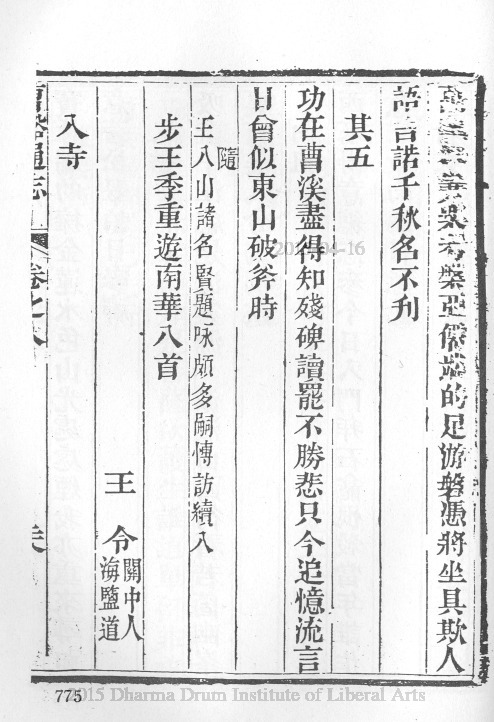 亞儒蹤的足游磐憑將坐具欺人
語言諾千秋名不刋
其五
功在曹溪盡得知殘碑讀罷不勝悲只今追憶流言
日曾似東山破斧時
隨王入山諸名賢題咏頗多嗣傳訪續入
步王季重遊南華八首
王令關中人海鹽道
入寺
通志卷之八
2015-04-16
775
2015 Dharma Drum Institute of Liberal Arts